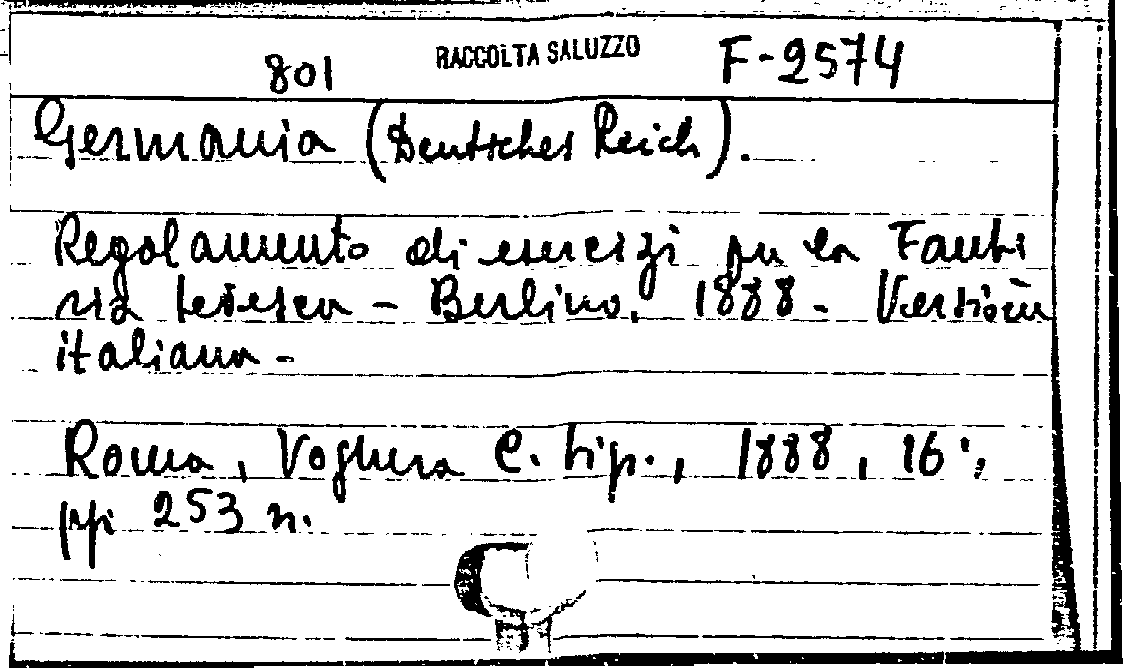 801 RACCOLTA SALUZZO F-2574
Germania (Deutsches Reich).
Regolamento di esercizi per la Fante
ria tedesca - Berlino. 1888 - Versione
italiana -
Roma, Voghera C. tip., 1888, 16°,
pp. 253 n.